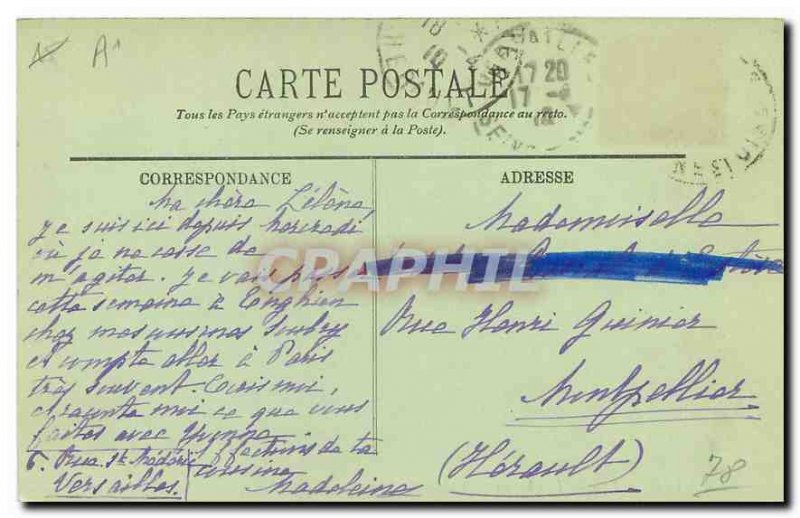 A1
CARTE POSTALE
Tous les Pays étrangers n'acceptent pas la Correspondance au recto.
(Se renseigner à la Poste).
CORRESPONDANCE
Ma chère Hélène,
je suis ici depuis mercredi
où je ne cesse de
m'agiter. Je vais passer
cette semaine à Enghien
chez mes cousines
et compte aller à Paris
très souvent. Ecris moi,
et raconte moi ce que vous
faites avec Yvonne
6. Rue St Médéric
Versailles.
affections de ta
cousine
Madeleine
ADRESSE
Mademoiselle
Rue Henri Guinier
Montpellier
(Hérault)
78
17 20
17
CPARAPHIL